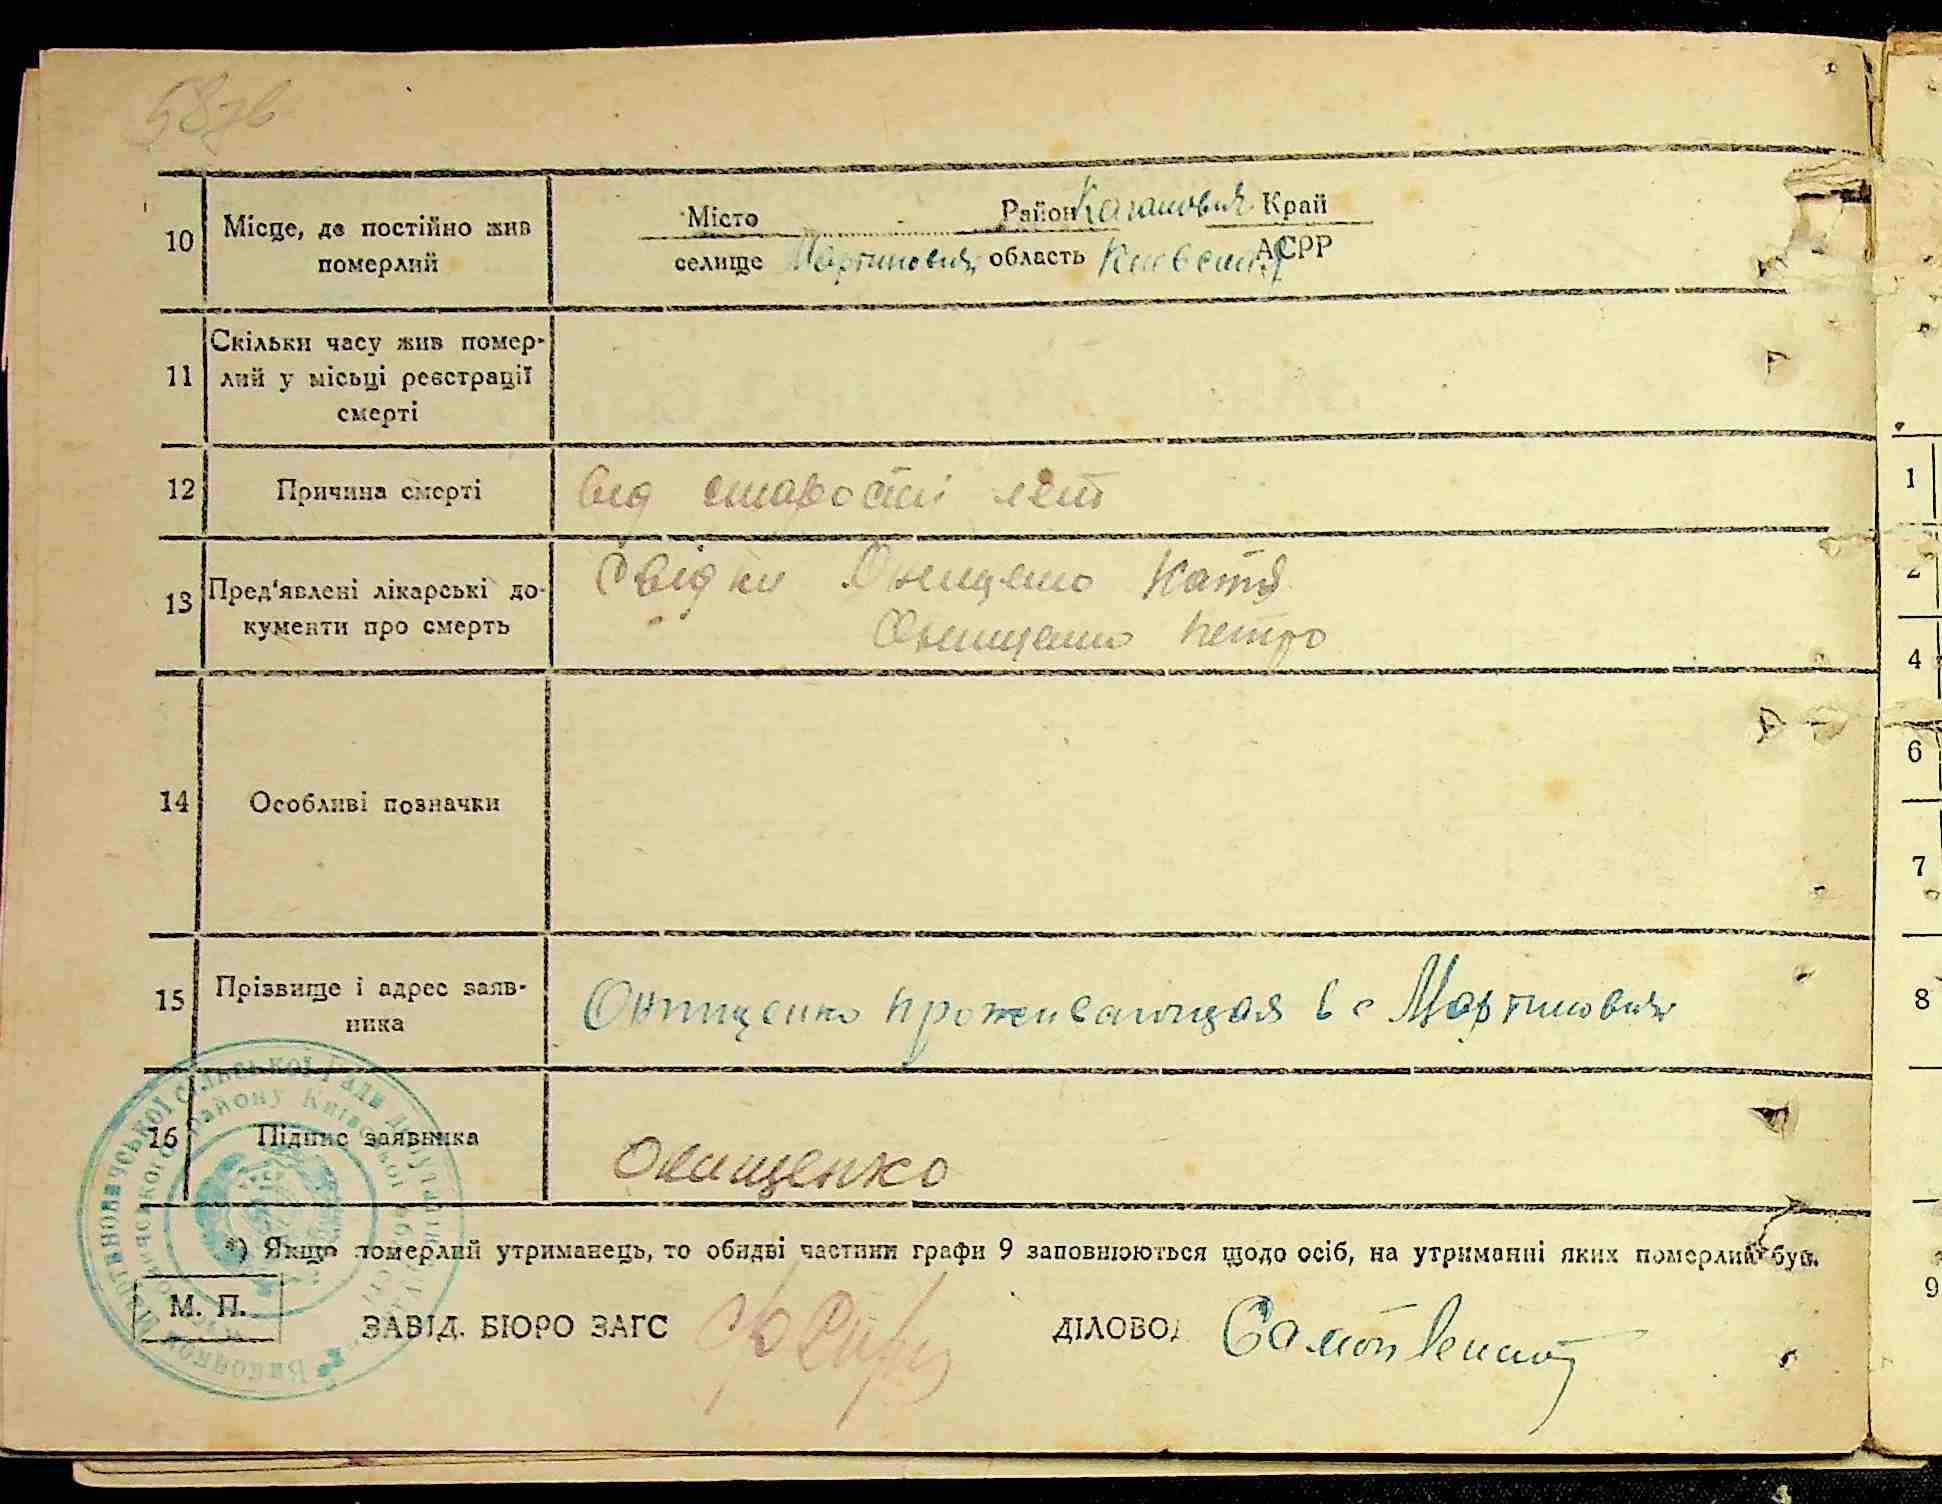 58 зв
10 Місце, де постійно жив померлий
Місто Район Каганович Край
селище Мартинович область Киевская АСРР
11 Скільки часу жив помер-
лий у місьці реєстрації
смерті
12 Причина смерті від старости лет
13 Пред'явлені лікарські до-
кументи про смерть
Свідки Онищенко Катя
Онищенко Петро
14 Особливі позначки
15 Прізвище і адрес заяв-
ника
Онищенко проживающая в с Мартинович
16 Підпис заявника Онищенко
*) Якщо померлий утриманець, то обидві частини графи 9 заповнюються щодо осіб, на утриманні яких померлий був.
М. П. ЗАВІД. БЮРО ЗАГС ДІЛОВОД
1
2
4
6
7
8
9